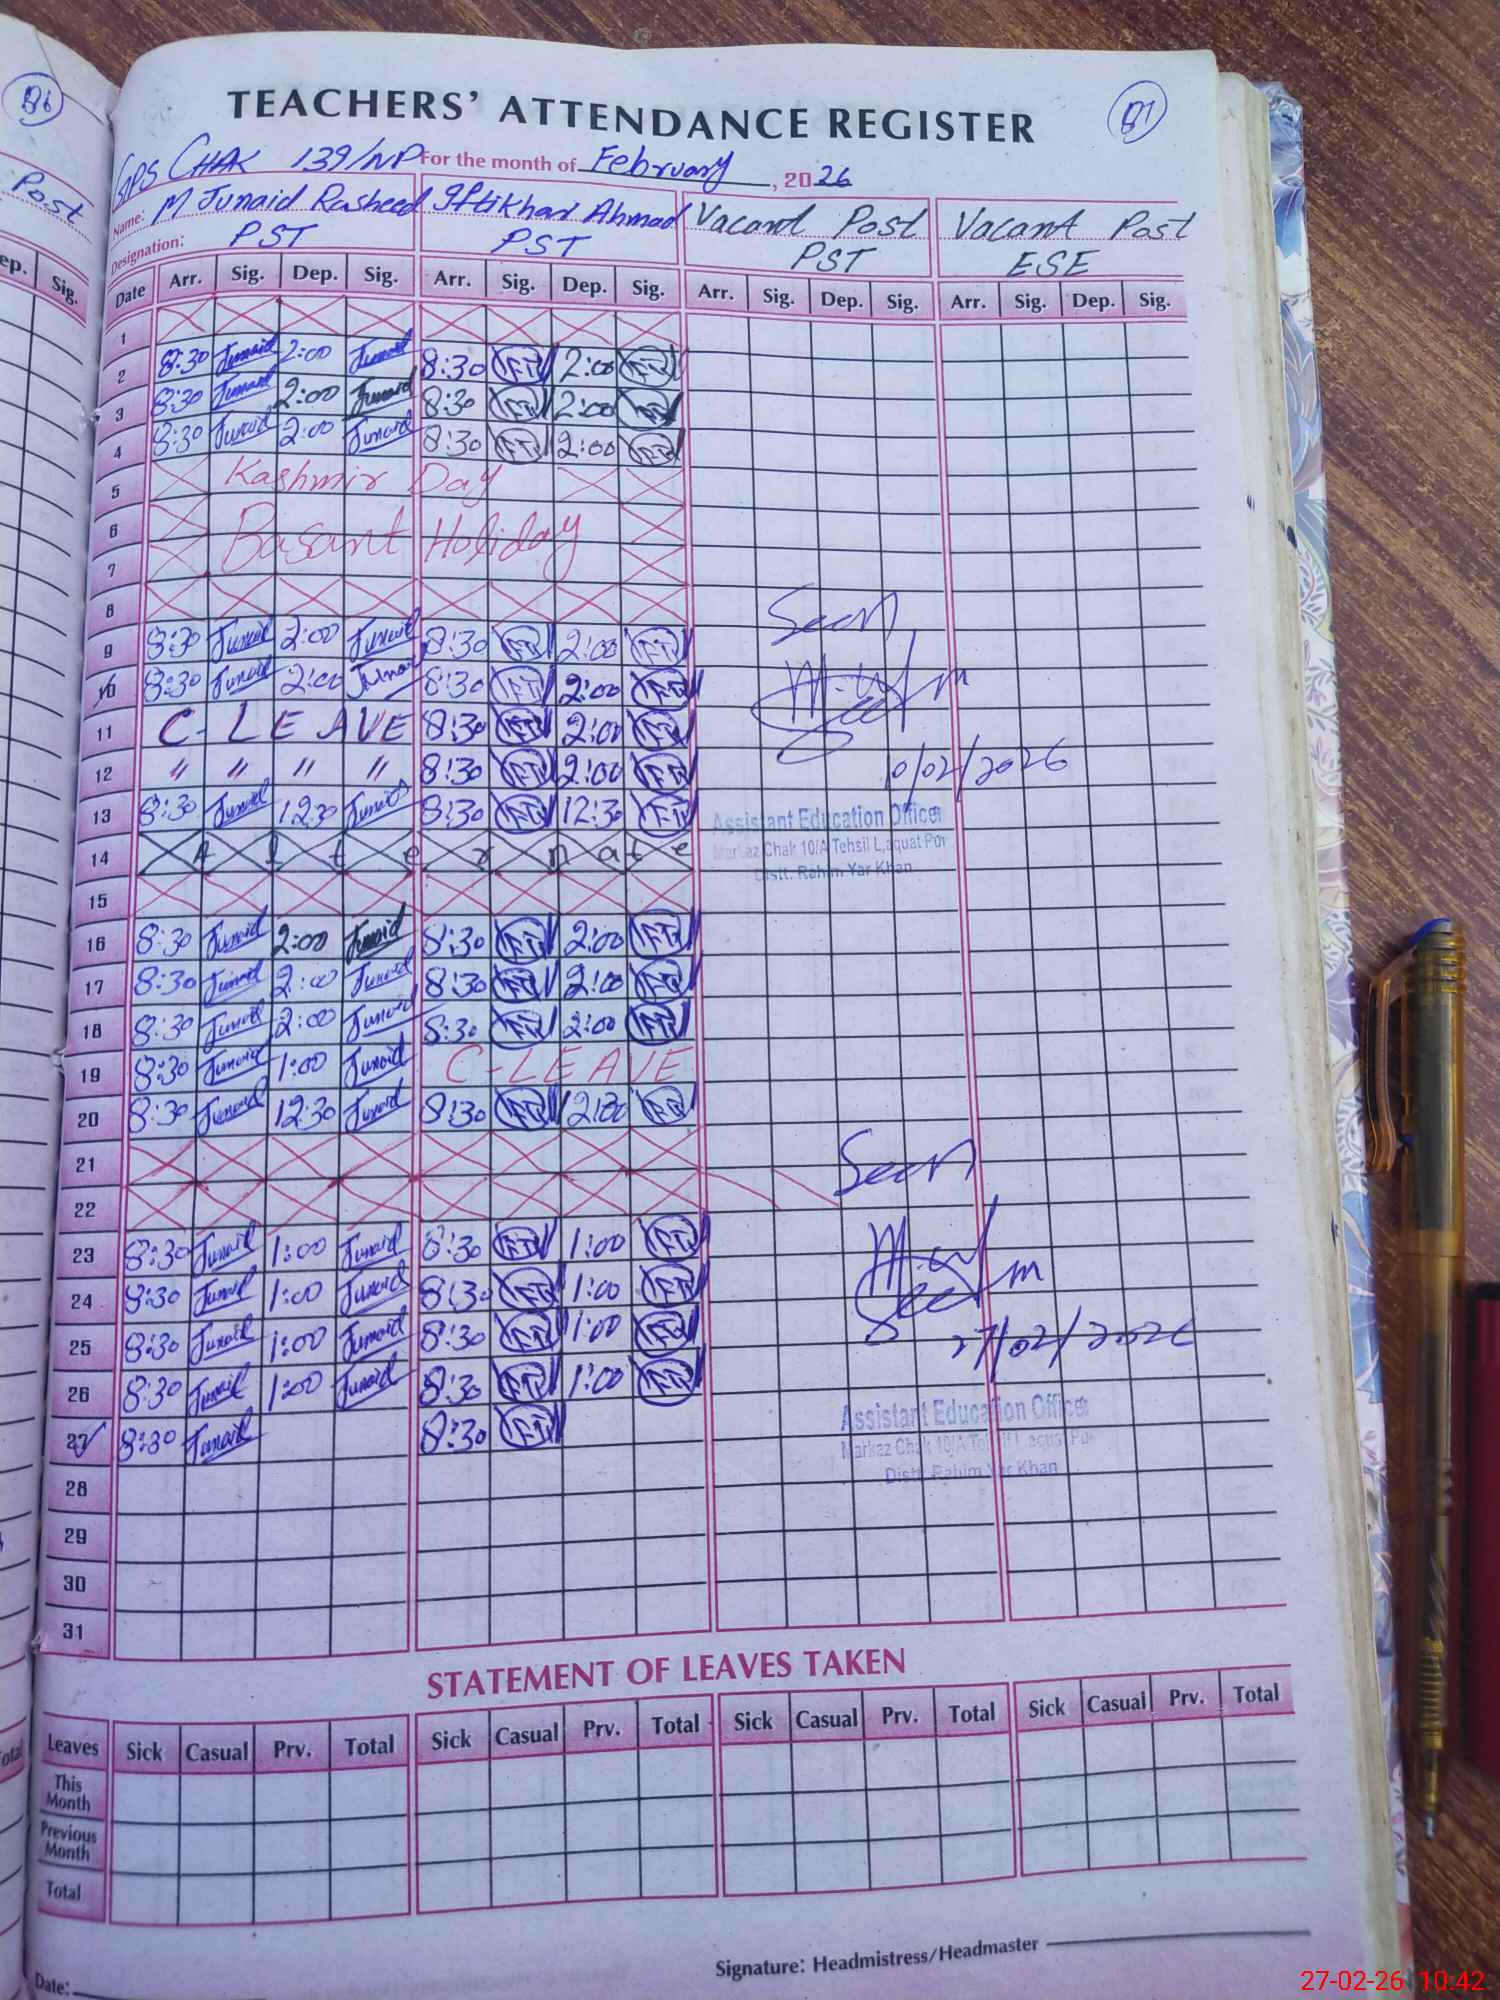 87
TEACHERS' ATTENDANCE REGISTER
GPS CHAK 139/NP For the month of February, 2026
Name: M Junaid Rasheed Iftikhar Ahmad Vacant Post Vacant Post
Designation: PST PST PST ESE
Date Arr. Sig. Dep. Sig. Arr. Sig. Dep. Sig. Arr. Sig. Dep. Sig. Arr. Sig. Dep. Sig.
1
2 8:30 Junaid 2:00 Junaid 8:30 IFTI 2:00 IFTI
3 8:30 Junaid 2:00 Junaid 8:30 IFTI 2:00 IFTI
4 8:30 Junaid 2:00 Junaid 8:30 IFTI 2:00 IFTI
5 Kashmir Day
6 Basant Holiday
7
8
Seen
9 8:30 Junaid 2:00 Junaid 8:30 IFTI 2:00 IFTI
10 8:30 Junaid 2:00 Junaid 8:30 IFTI 2:00 IFTI
11 C-LEAVE 8:30 IFTI 2:00 IFTI
12 " " " " 8:30 IFTI 2:00 IFTI
10/02/2026
13 8:30 Junaid 12:30 Junaid 8:30 IFTI 12:30 IFTI
Assistant Education Officer
Markaz Chak 10/A Tehsil Liaquat Pur
Distt. Rahim Yar Khan
14 Alternate
15
16 8:30 Junaid 2:00 Junaid 8:30 IFTI 2:00 IFTI
17 8:30 Junaid 2:00 Junaid 8:30 IFTI 2:00 IFTI
18 8:30 Junaid 2:00 Junaid 8:30 IFTI 2:00 IFTI
19 8:30 Junaid 1:00 Junaid C-LEAVE
20 8:30 Junaid 12:30 Junaid 8:30 IFTI 12:30 IFTI
21
Seen
22
23 8:30 Junaid 1:00 Junaid 8:30 IFTI 1:00 IFTI
24 8:30 Junaid 1:00 Junaid 8:30 IFTI 1:00 IFTI
25 8:30 Junaid 1:00 Junaid 8:30 IFTI 1:00 IFTI
27/02/2026
26 8:30 Junaid 1:00 Junaid 8:30 IFTI 1:00 IFTI
27 8:30 Junaid 8:30 IFTI
Assistant Education Officer
Markaz Chak 10/A Tehsil Liaquat Pur
Distt. Rahim Yar Khan
28
29
30
31
STATEMENT OF LEAVES TAKEN
Leaves Sick Casual Prv. Total Sick Casual Prv. Total Sick Casual Prv. Total Sick Casual Prv. Total
This Month
Previous Month
Total
Date:
Signature: Headmistress/Headmaster
27-02-26 10:42
86
Post
ep. Sig.
otal